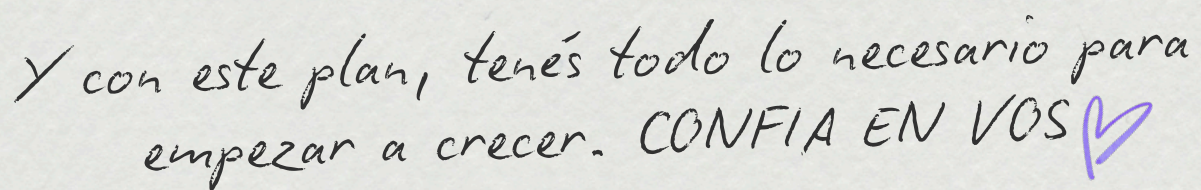 Y con este plan, tenés todo lo necesario para
empezar a crecer. CONFIA EN VOS